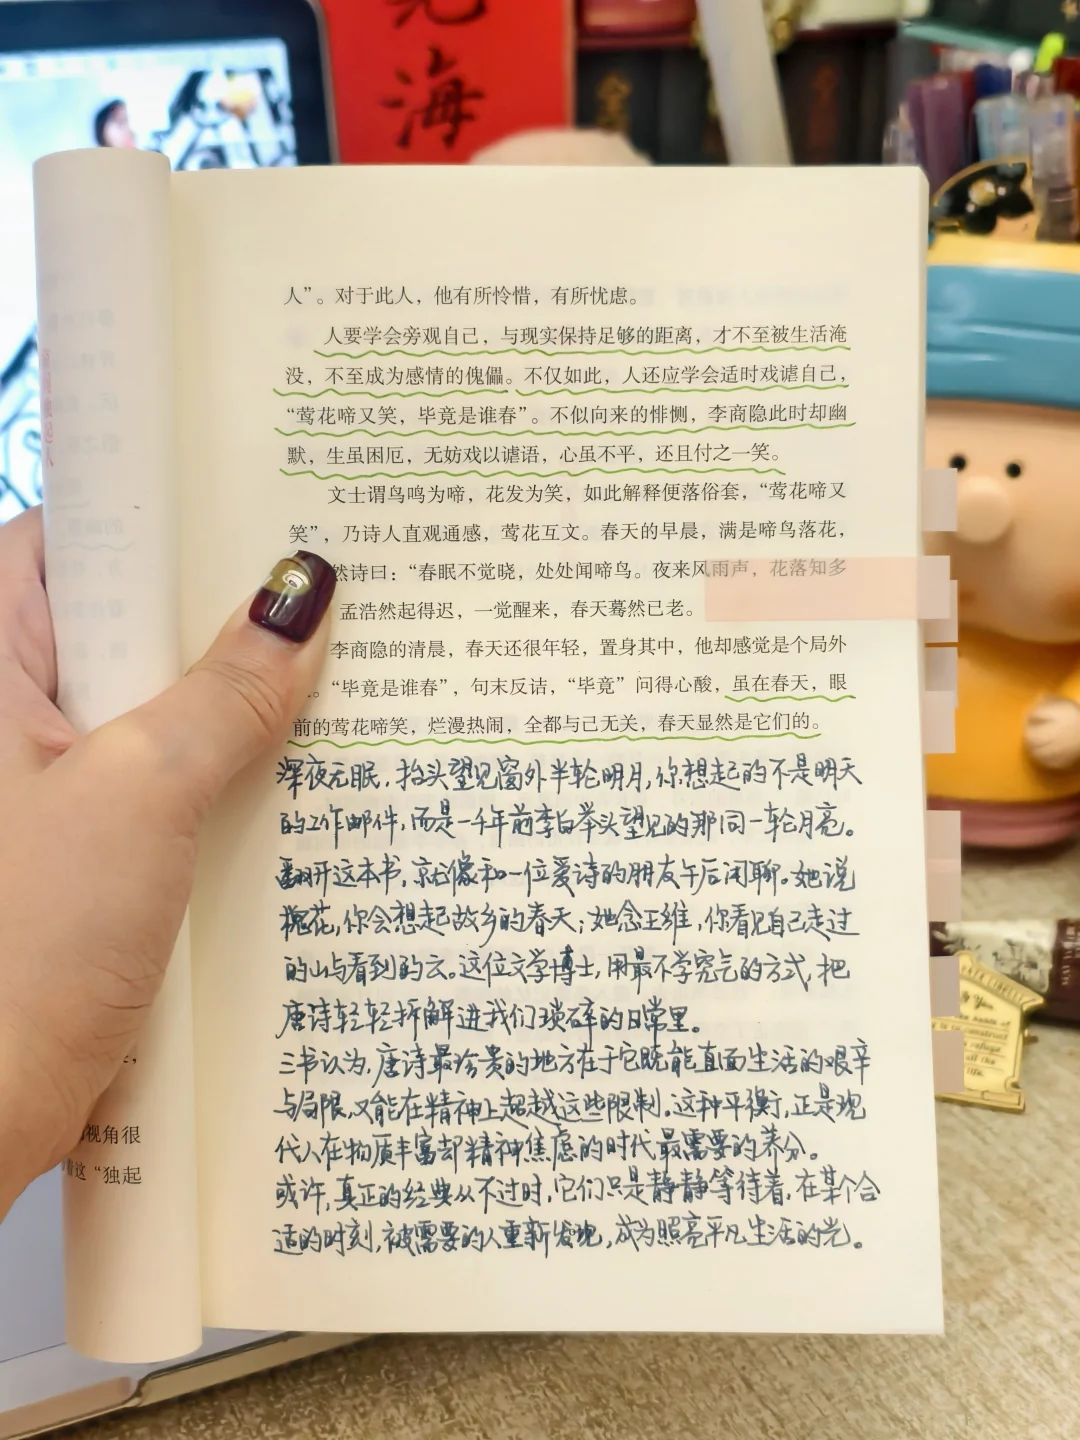 海
人”。对于此人，他有所怜惜，有所忧虑。
人要学会旁观自己，与现实保持足够的距离，才不至被生活淹
没，不至成为感情的傀儡。不仅如此，人还应学会适时戏谑自己，
“莺花啼又笑，毕竟是谁春”。不似向来的悱恻，李商隐此时却幽
默，生虽困厄，无妨戏以谑语，心虽不平，还且付之一笑。
文士谓鸟鸣为啼，花发为笑，如此解释便落俗套，“莺花啼又
笑”，乃诗人直观通感，莺花互文。春天的早晨，满是啼鸟落花，
然诗曰：“春眠不觉晓，处处闻啼鸟。夜来风雨声，花落知多
孟浩然起得迟，一觉醒来，春天蓦然已老。
李商隐的清晨，春天还很年轻，置身其中，他却感觉是个局外
。“毕竟是谁春”，句末反诘，“毕竟”问得心酸，虽在春天，眼
前的莺花啼笑，烂漫热闹，全都与己无关，春天显然是它们的。
深夜无眠，抬头望见窗外半轮明月，你想起的不是明天
的工作邮件，而是一千年前李白举头望见的那同一轮月亮。
翻开这本书，就像和一位爱诗的朋友午后闲聊。她说
槐花，你会想起故乡的春天；她念王维，你看见自己走过
的山与看到的云。这位文学博士，用最不学究气的方式，把
唐诗轻轻拆解进我们琐碎的日常里。
三书认为，唐诗最珍贵的地方在于它既能直面生活的艰辛
与局限，又能在精神上超越这些限制。这种平衡，正是现
代人在物质丰富却精神焦虑的时代最需要的养分。
或许，真正的经典从不过时，它们只是静静等待着，在某个合
适的时刻，被需要的人重新发现，成为照亮平凡生活的光。
视角很
这“独起